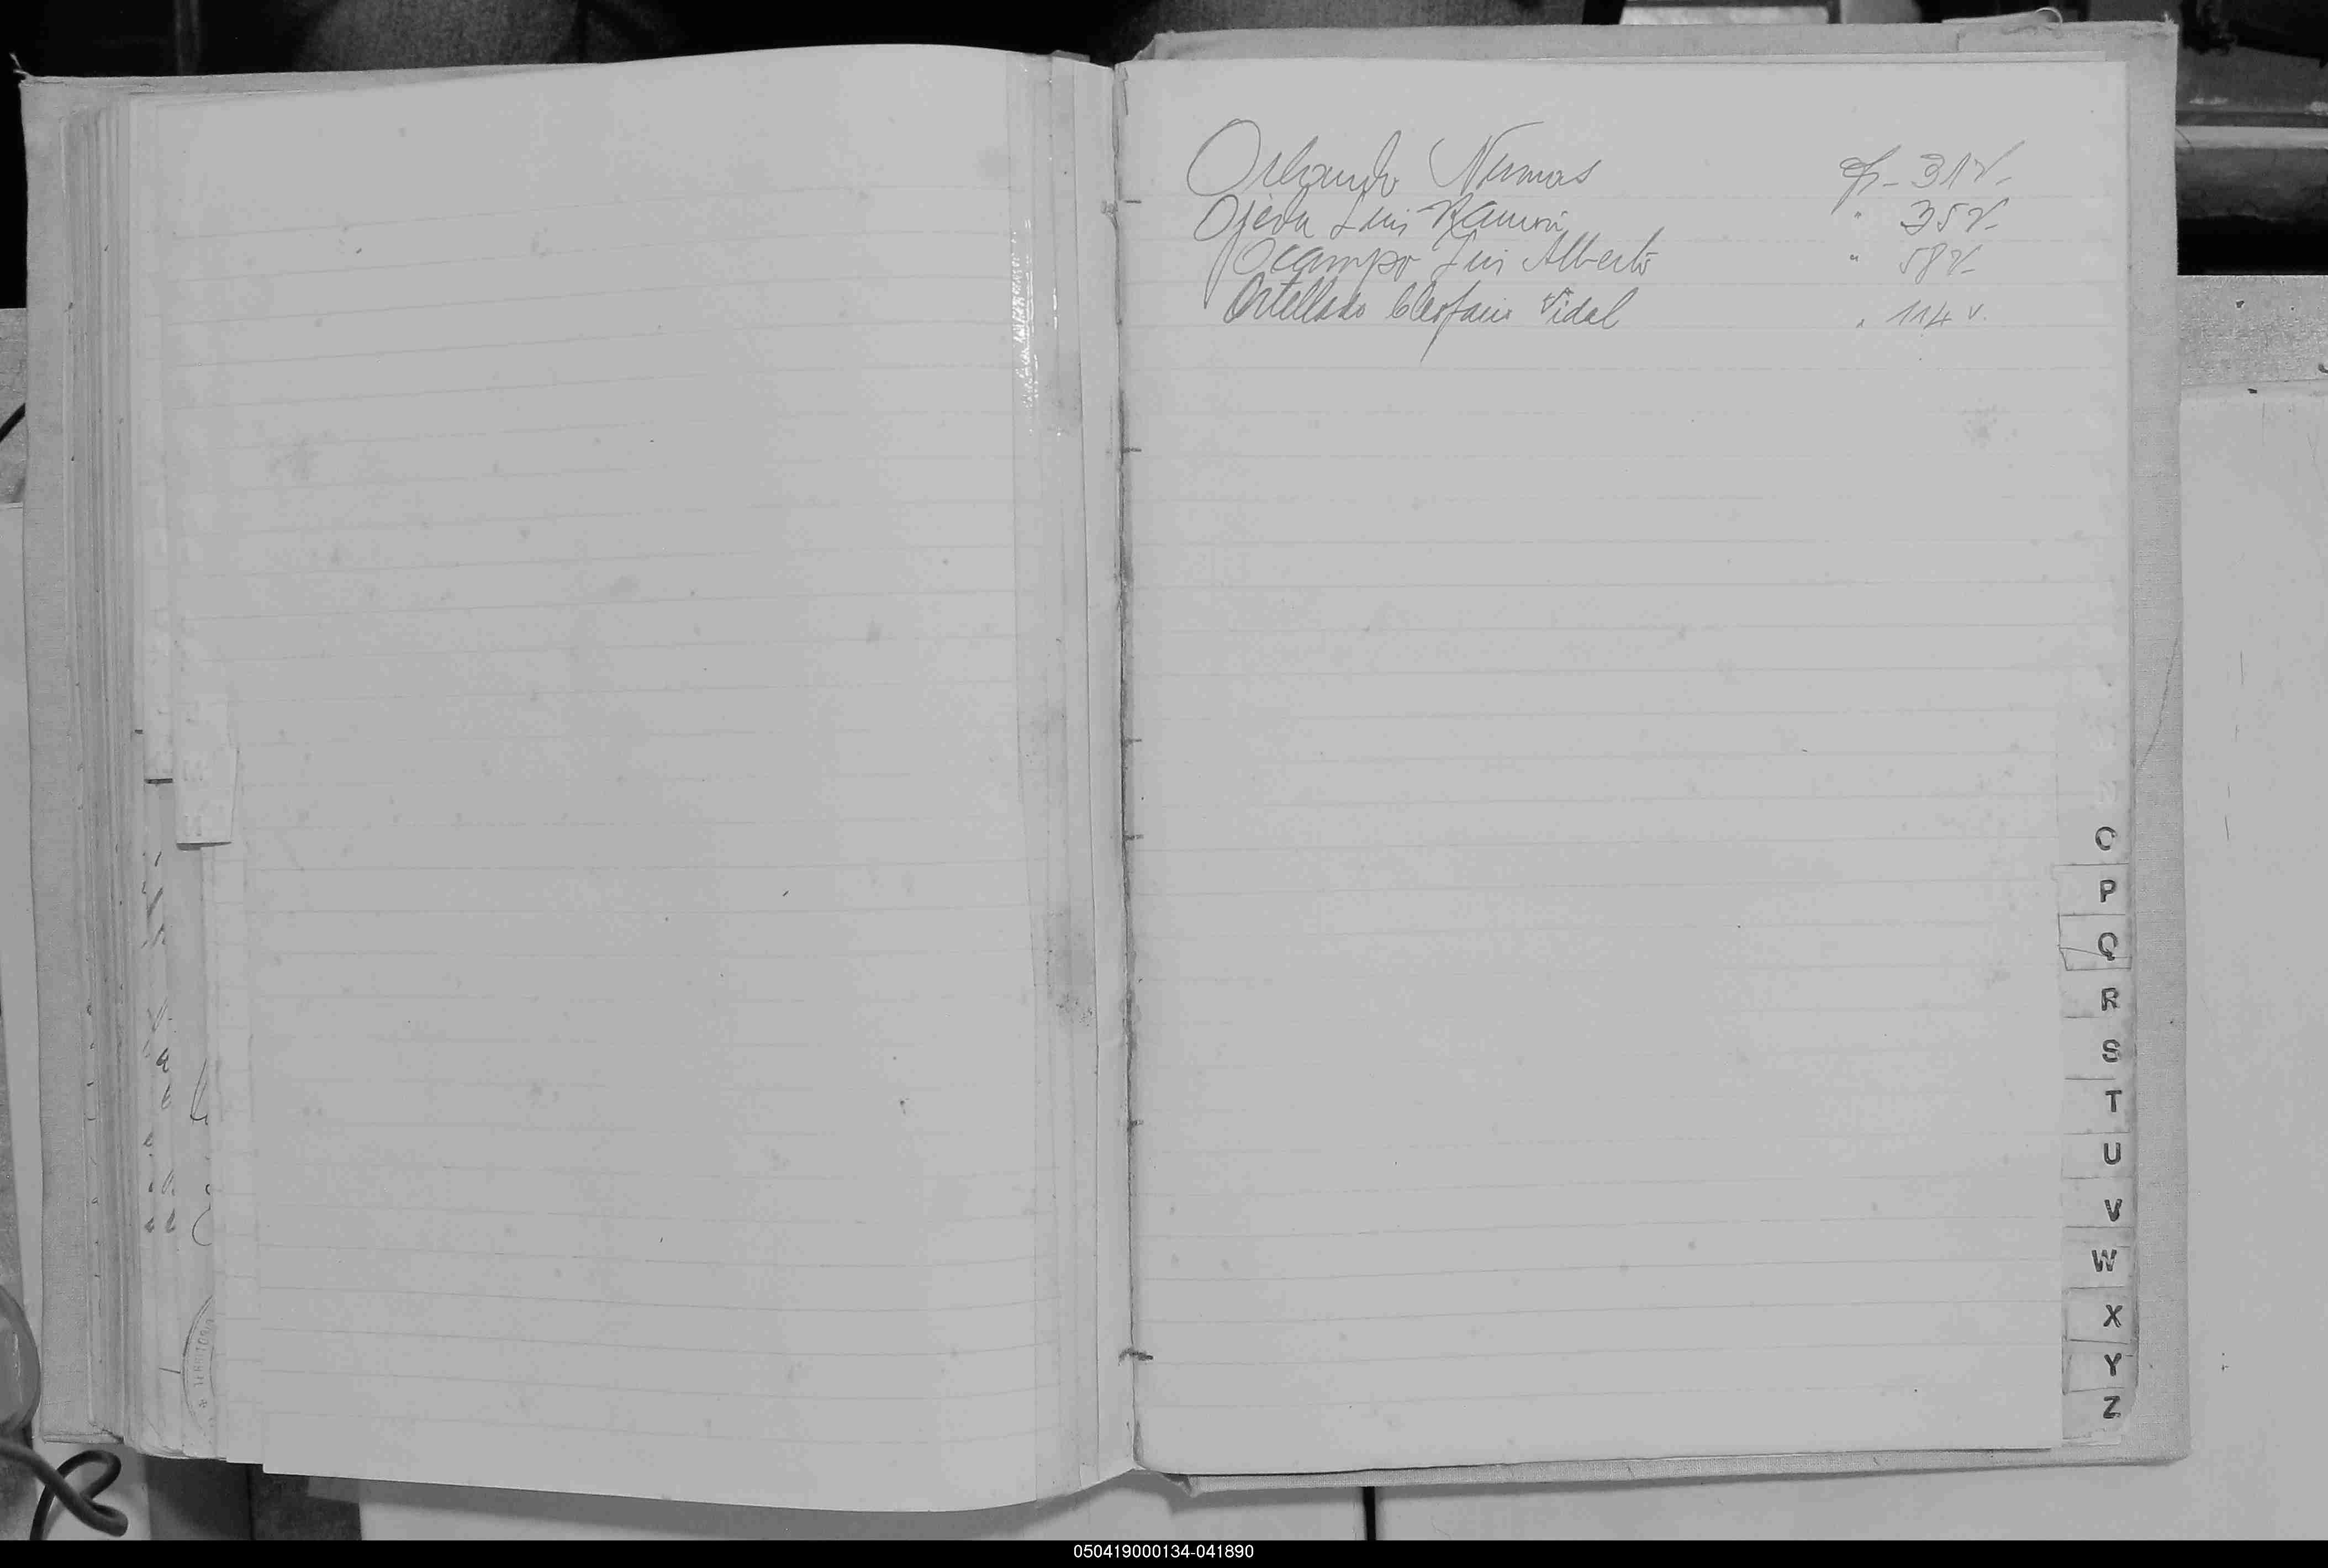 Orlando Numas f - 31 v -
Ojeda Luis Ramón " 35 v -
Ocampo Luis Alberto " 58 v -
Ortellado Vidal " 114 v.
O
P
Q
R
S
T
U
V
W
X
Y
Z
050419000134-041890